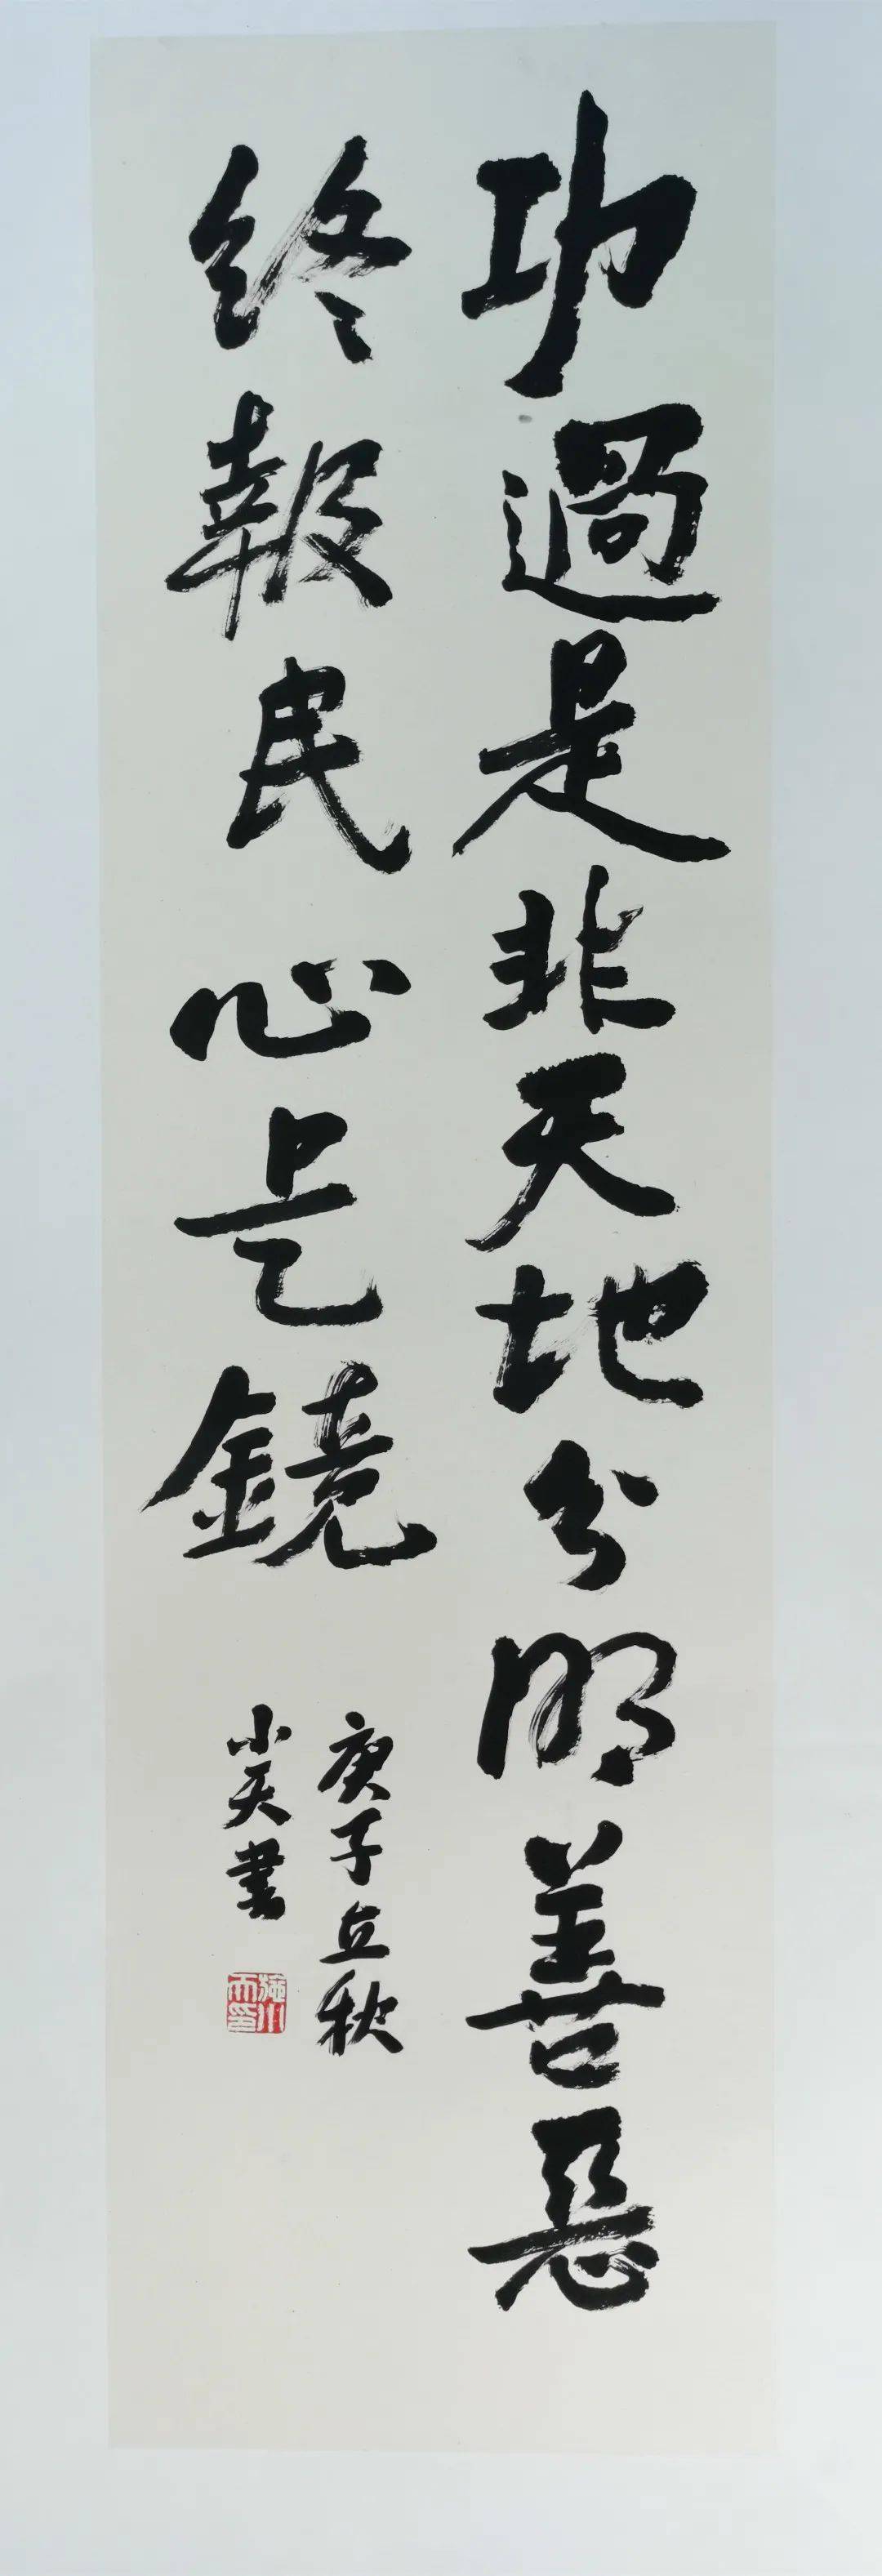 功過是非天地分明善惡
終報民心是鏡
庚子立秋
小天書
施小天印